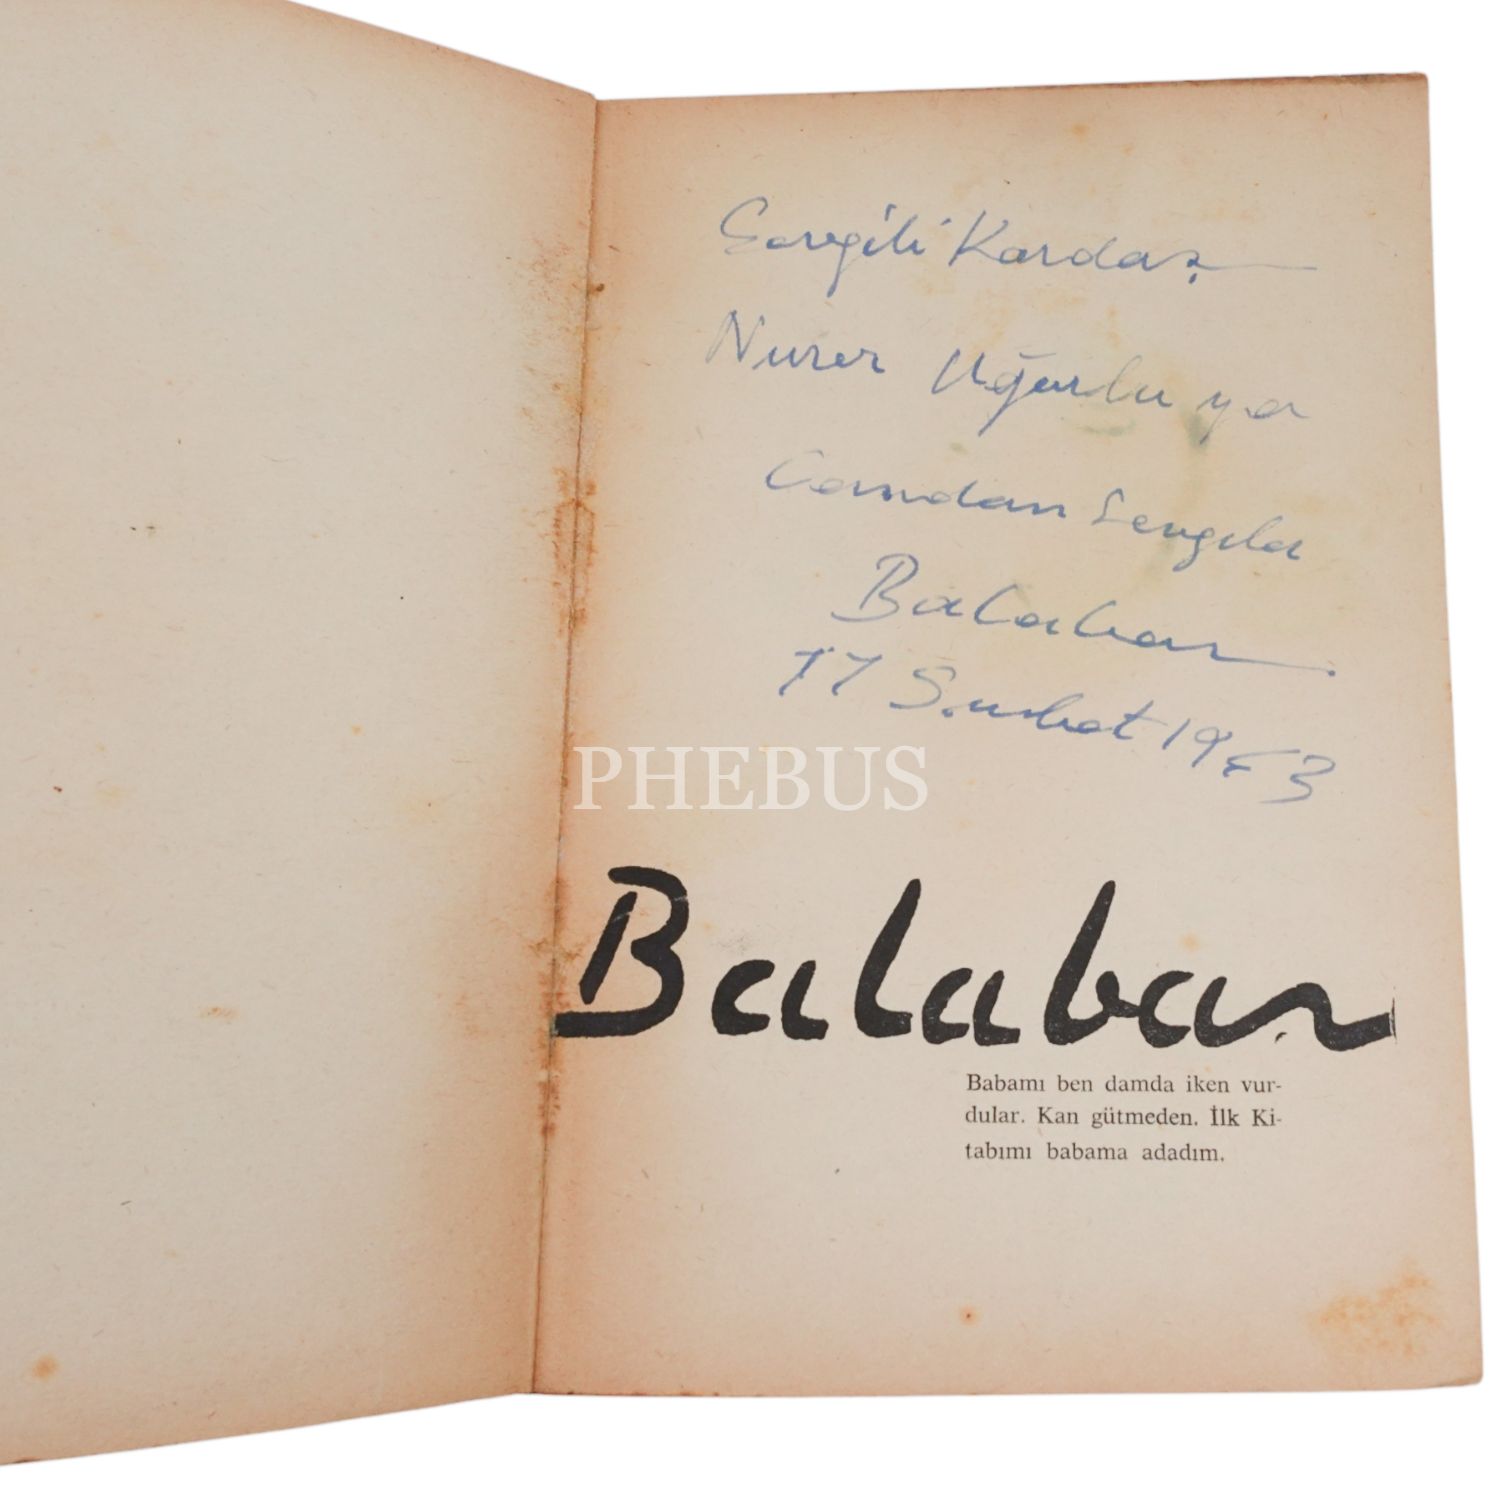 Sevgili Kardaş
Nurer Uğurlu ya
Candan Sevgiler
Balaban
17 Şubat 1963
PHEBUS
Balaban
Babamı ben damda iken vur-
dular. Kan gütmeden. İlk Ki-
tabımı babama adadım.